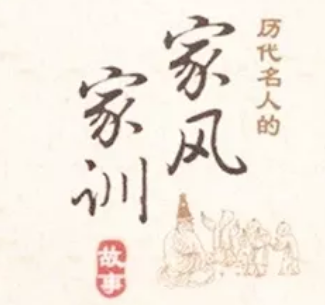 历代名人的
家风
家训
故事